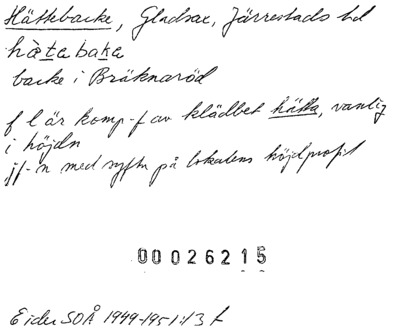 Hättebacke, Gladsax, Järrestads hd
hàtabaka
backe i Bräknaröd
f l är komp-f av klädbet hätta, vanlig
i höjdn
jf-n med syftn på lokalens höjdprofil
00026215
Eider SOÅ 1949-1951:13 f